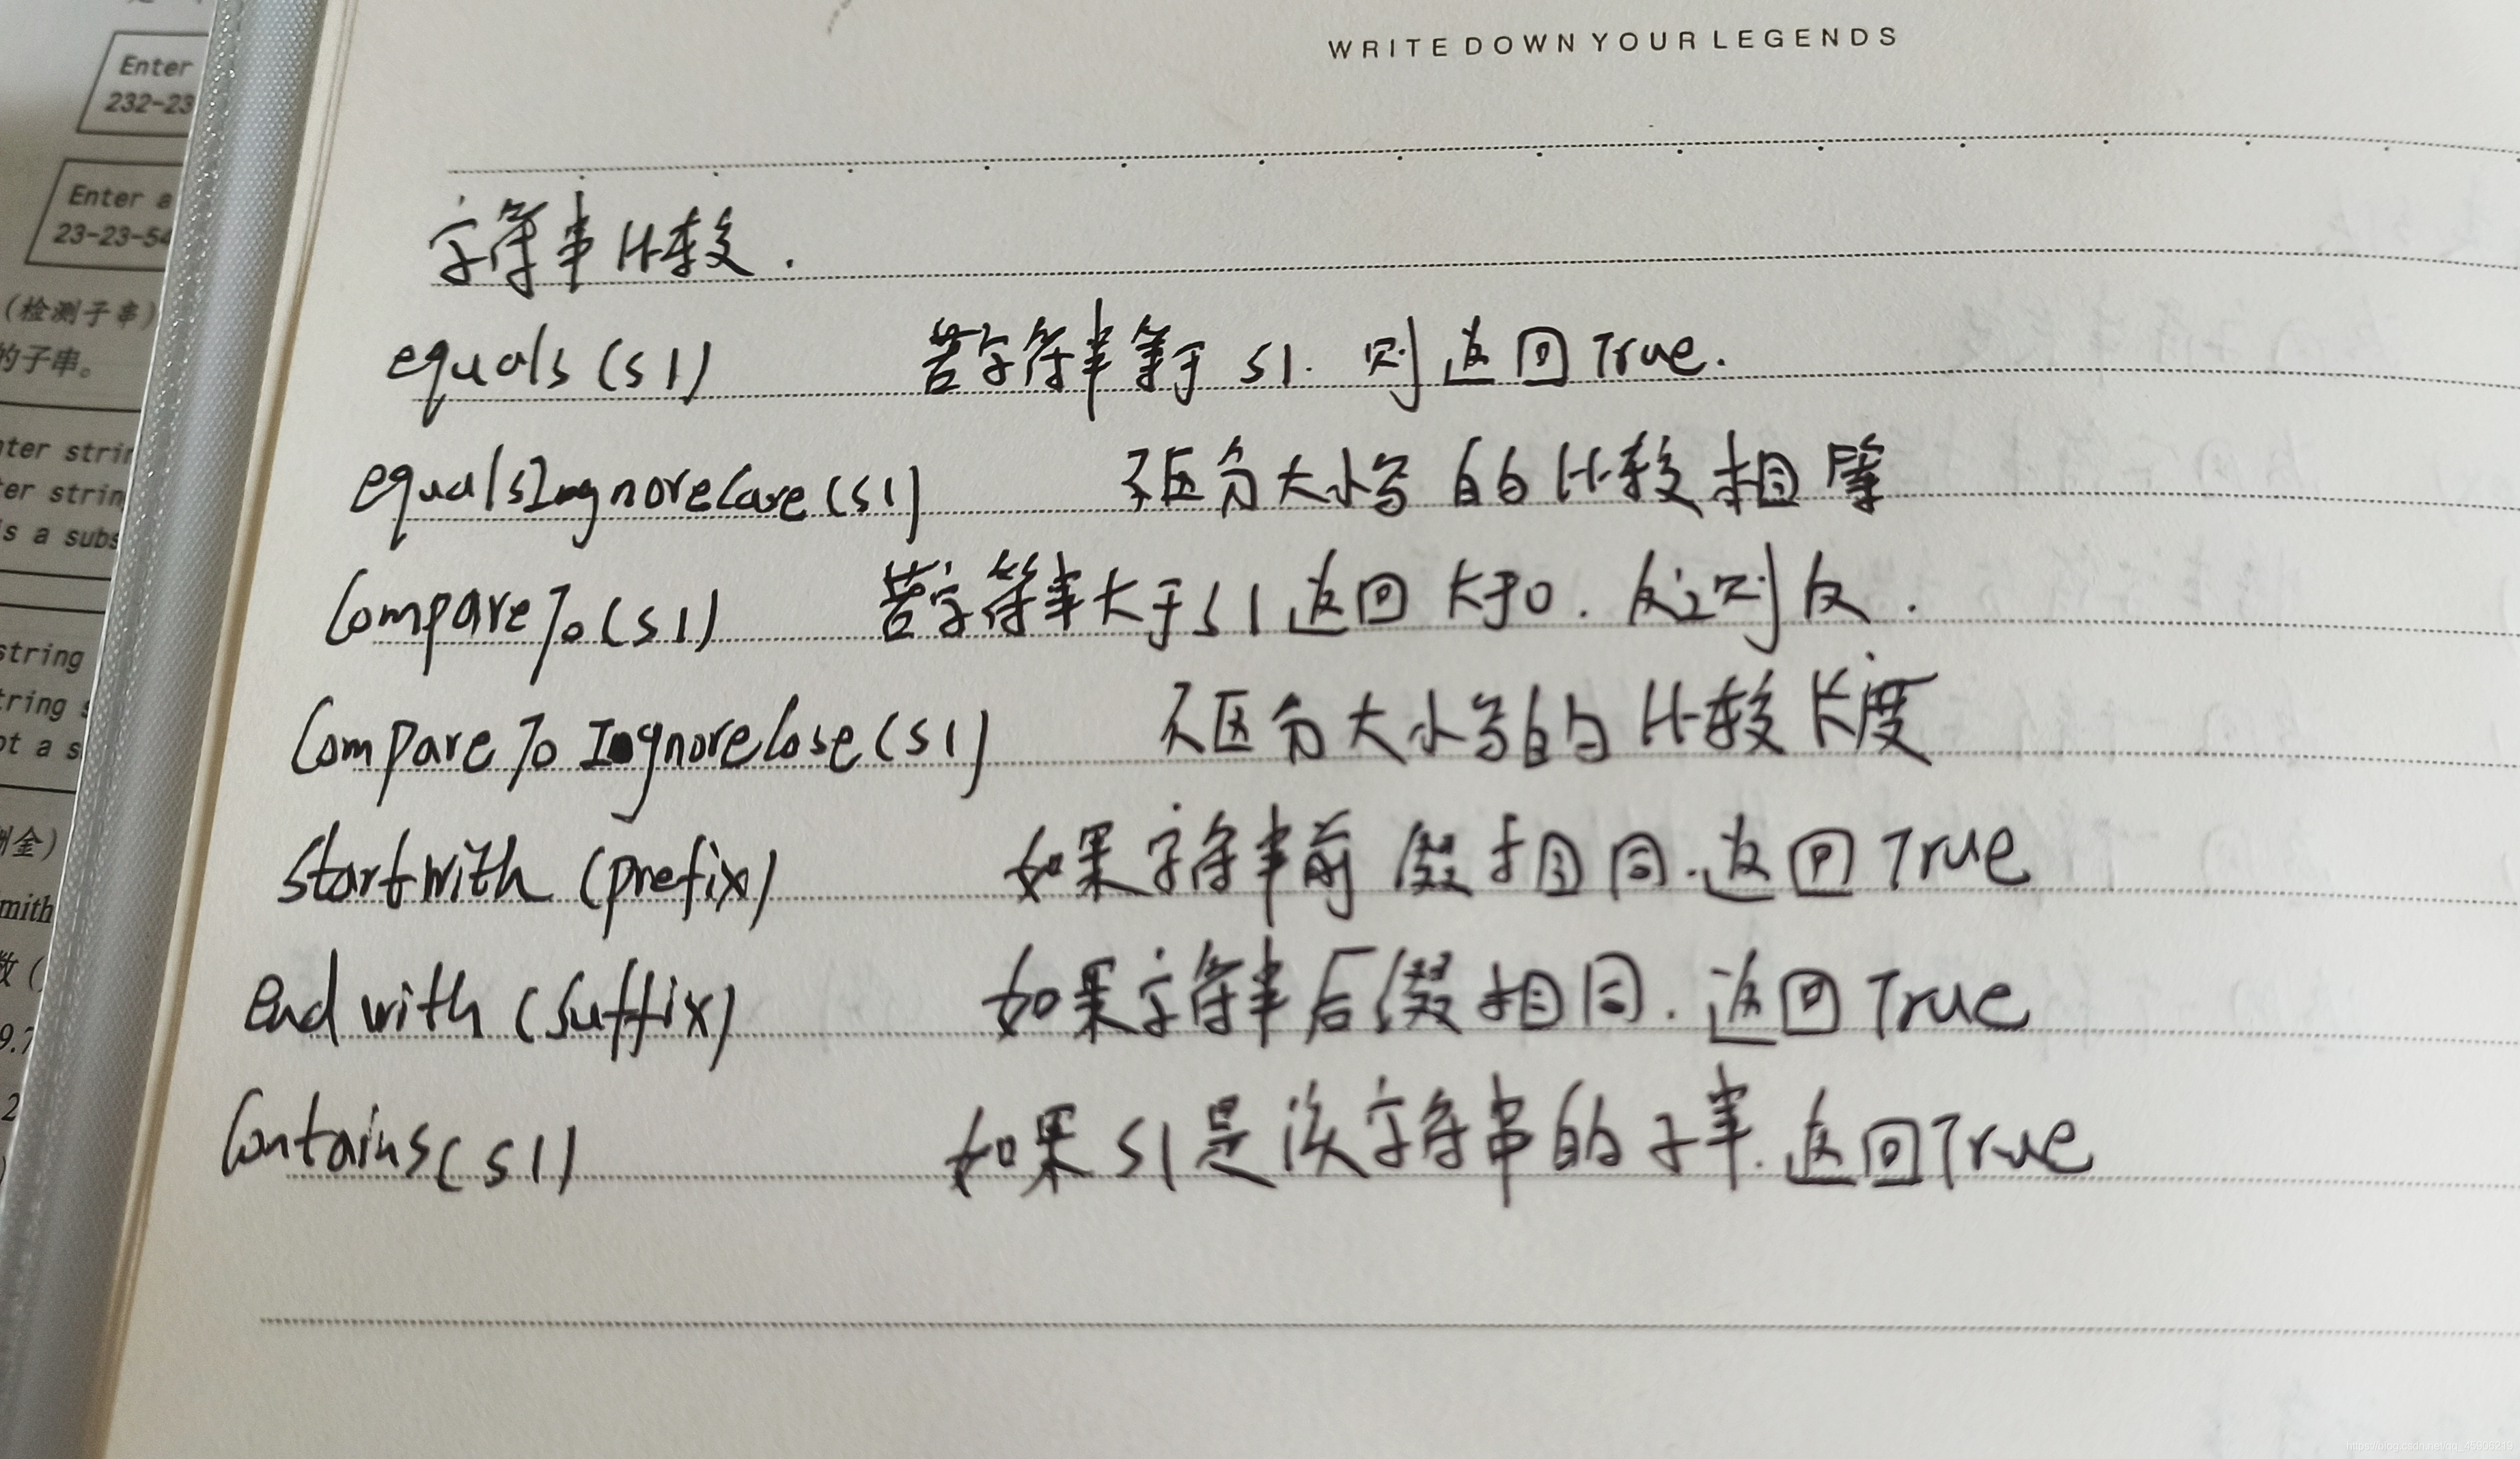 WRITE DOWN YOUR LEGENDS
Enter
232-23
Enter a
23-23-54
(检测子串)
的子串。
nter strin
ter string
s a subs
string
tring s
ot a s
金)
mith
数(
9.7
2
字符串比较.
equals(s1) 若字符串等于s1.则返回True.
equalsIngnoreCase(s1) 不区分大小写的比较相等
CompareTo(s1) 若字符串大于s1返回大于0.反之则反.
CompareToIngnoreCose(s1) 不区分大小写的比较长度
startwith(prefix) 如果字符串前缀相同.返回True
end with(suffix) 如果字符串后缀相同.返回True
Contains(s1) 如果s1是该字符串的子串.返回True
https://blog.csdn.net/qq_45906219